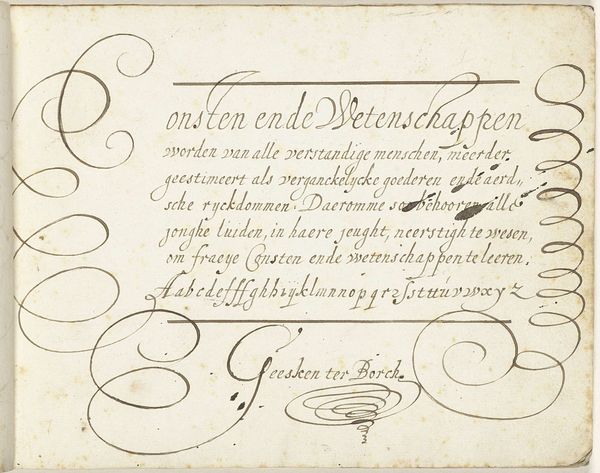 Consten ende Wetenschappen
worden van alle verstandige menschen, meerder
geestimeert als verganckelycke goederen ende aerd,
sche ryckdommen. Daeromme soo behooren alle
jonghe luiden, in haere jeught, neerstigh te wesen,
om fraeye Consten ende wetenschappen te leeren.
Aabcdefffghhiijklmnnopqrzſsttuvwxyz
Geesken ter Borch.